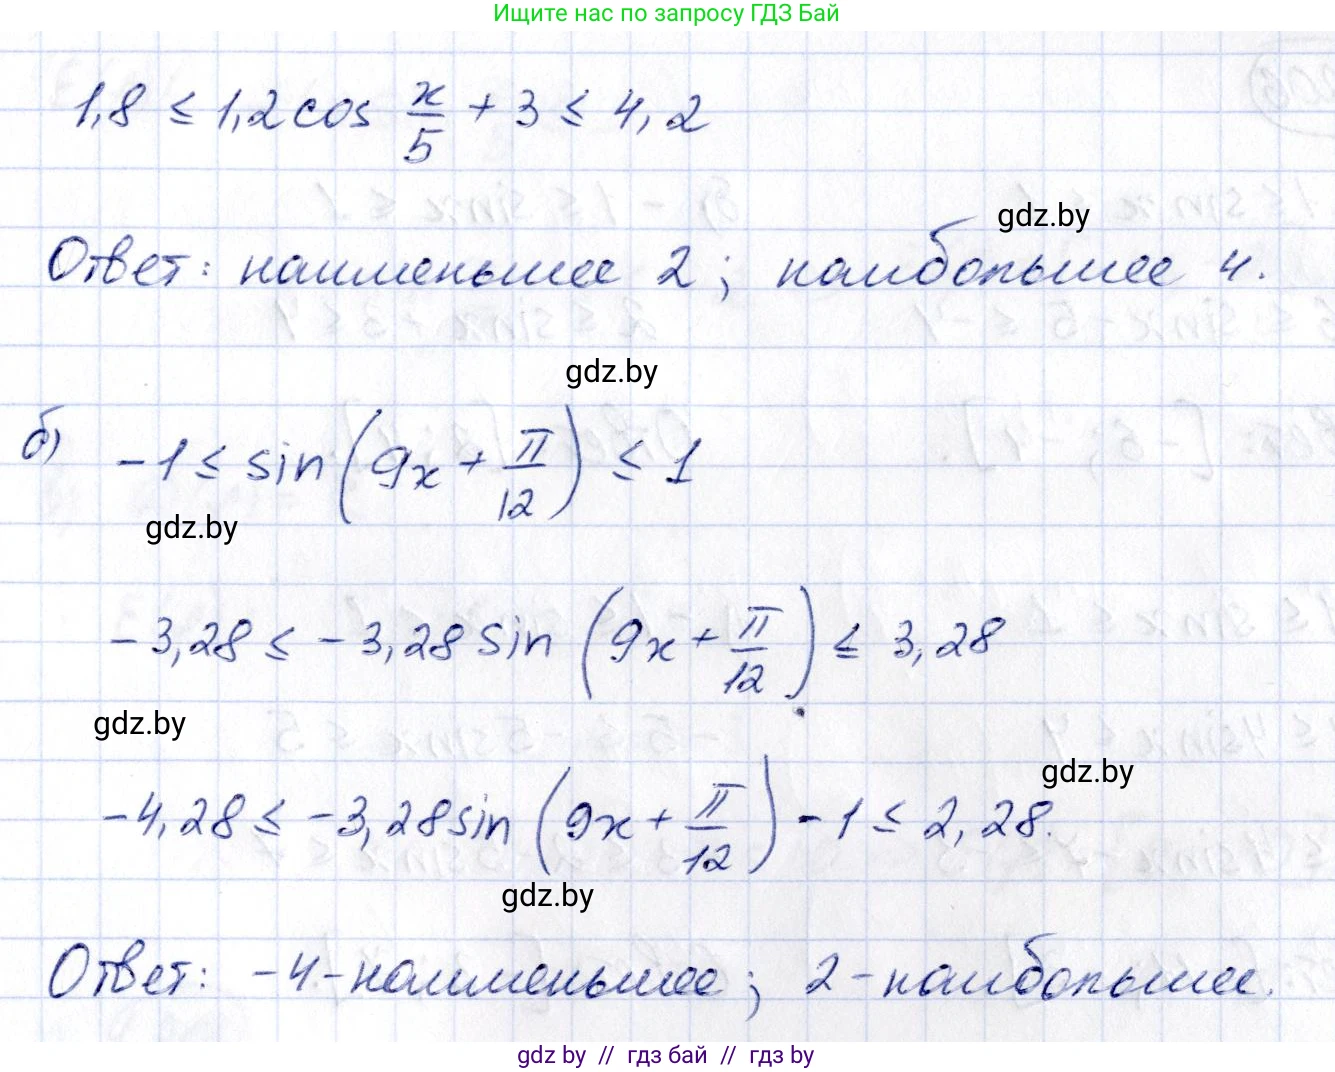 Ищите нас по запросу ГДЗ Бай
1,8 ≤ 1,2 cos x/5 + 3 ≤ 4,2
gdz.by
Ответ: наименьшее 2; наибольшее 4.
gdz.by
б) -1 ≤ sin(9x + π/12) ≤ 1
gdz.by
-3,28 ≤ -3,28 sin(9x + π/12) ≤ 3,28
gdz.by
gdz.by
-4,28 ≤ -3,28 sin(9x + π/12) - 1 ≤ 2,28.
gdz.by
Ответ: -4-наименьшее; 2-наибольшее.
gdz by // гдз бай // гдз by